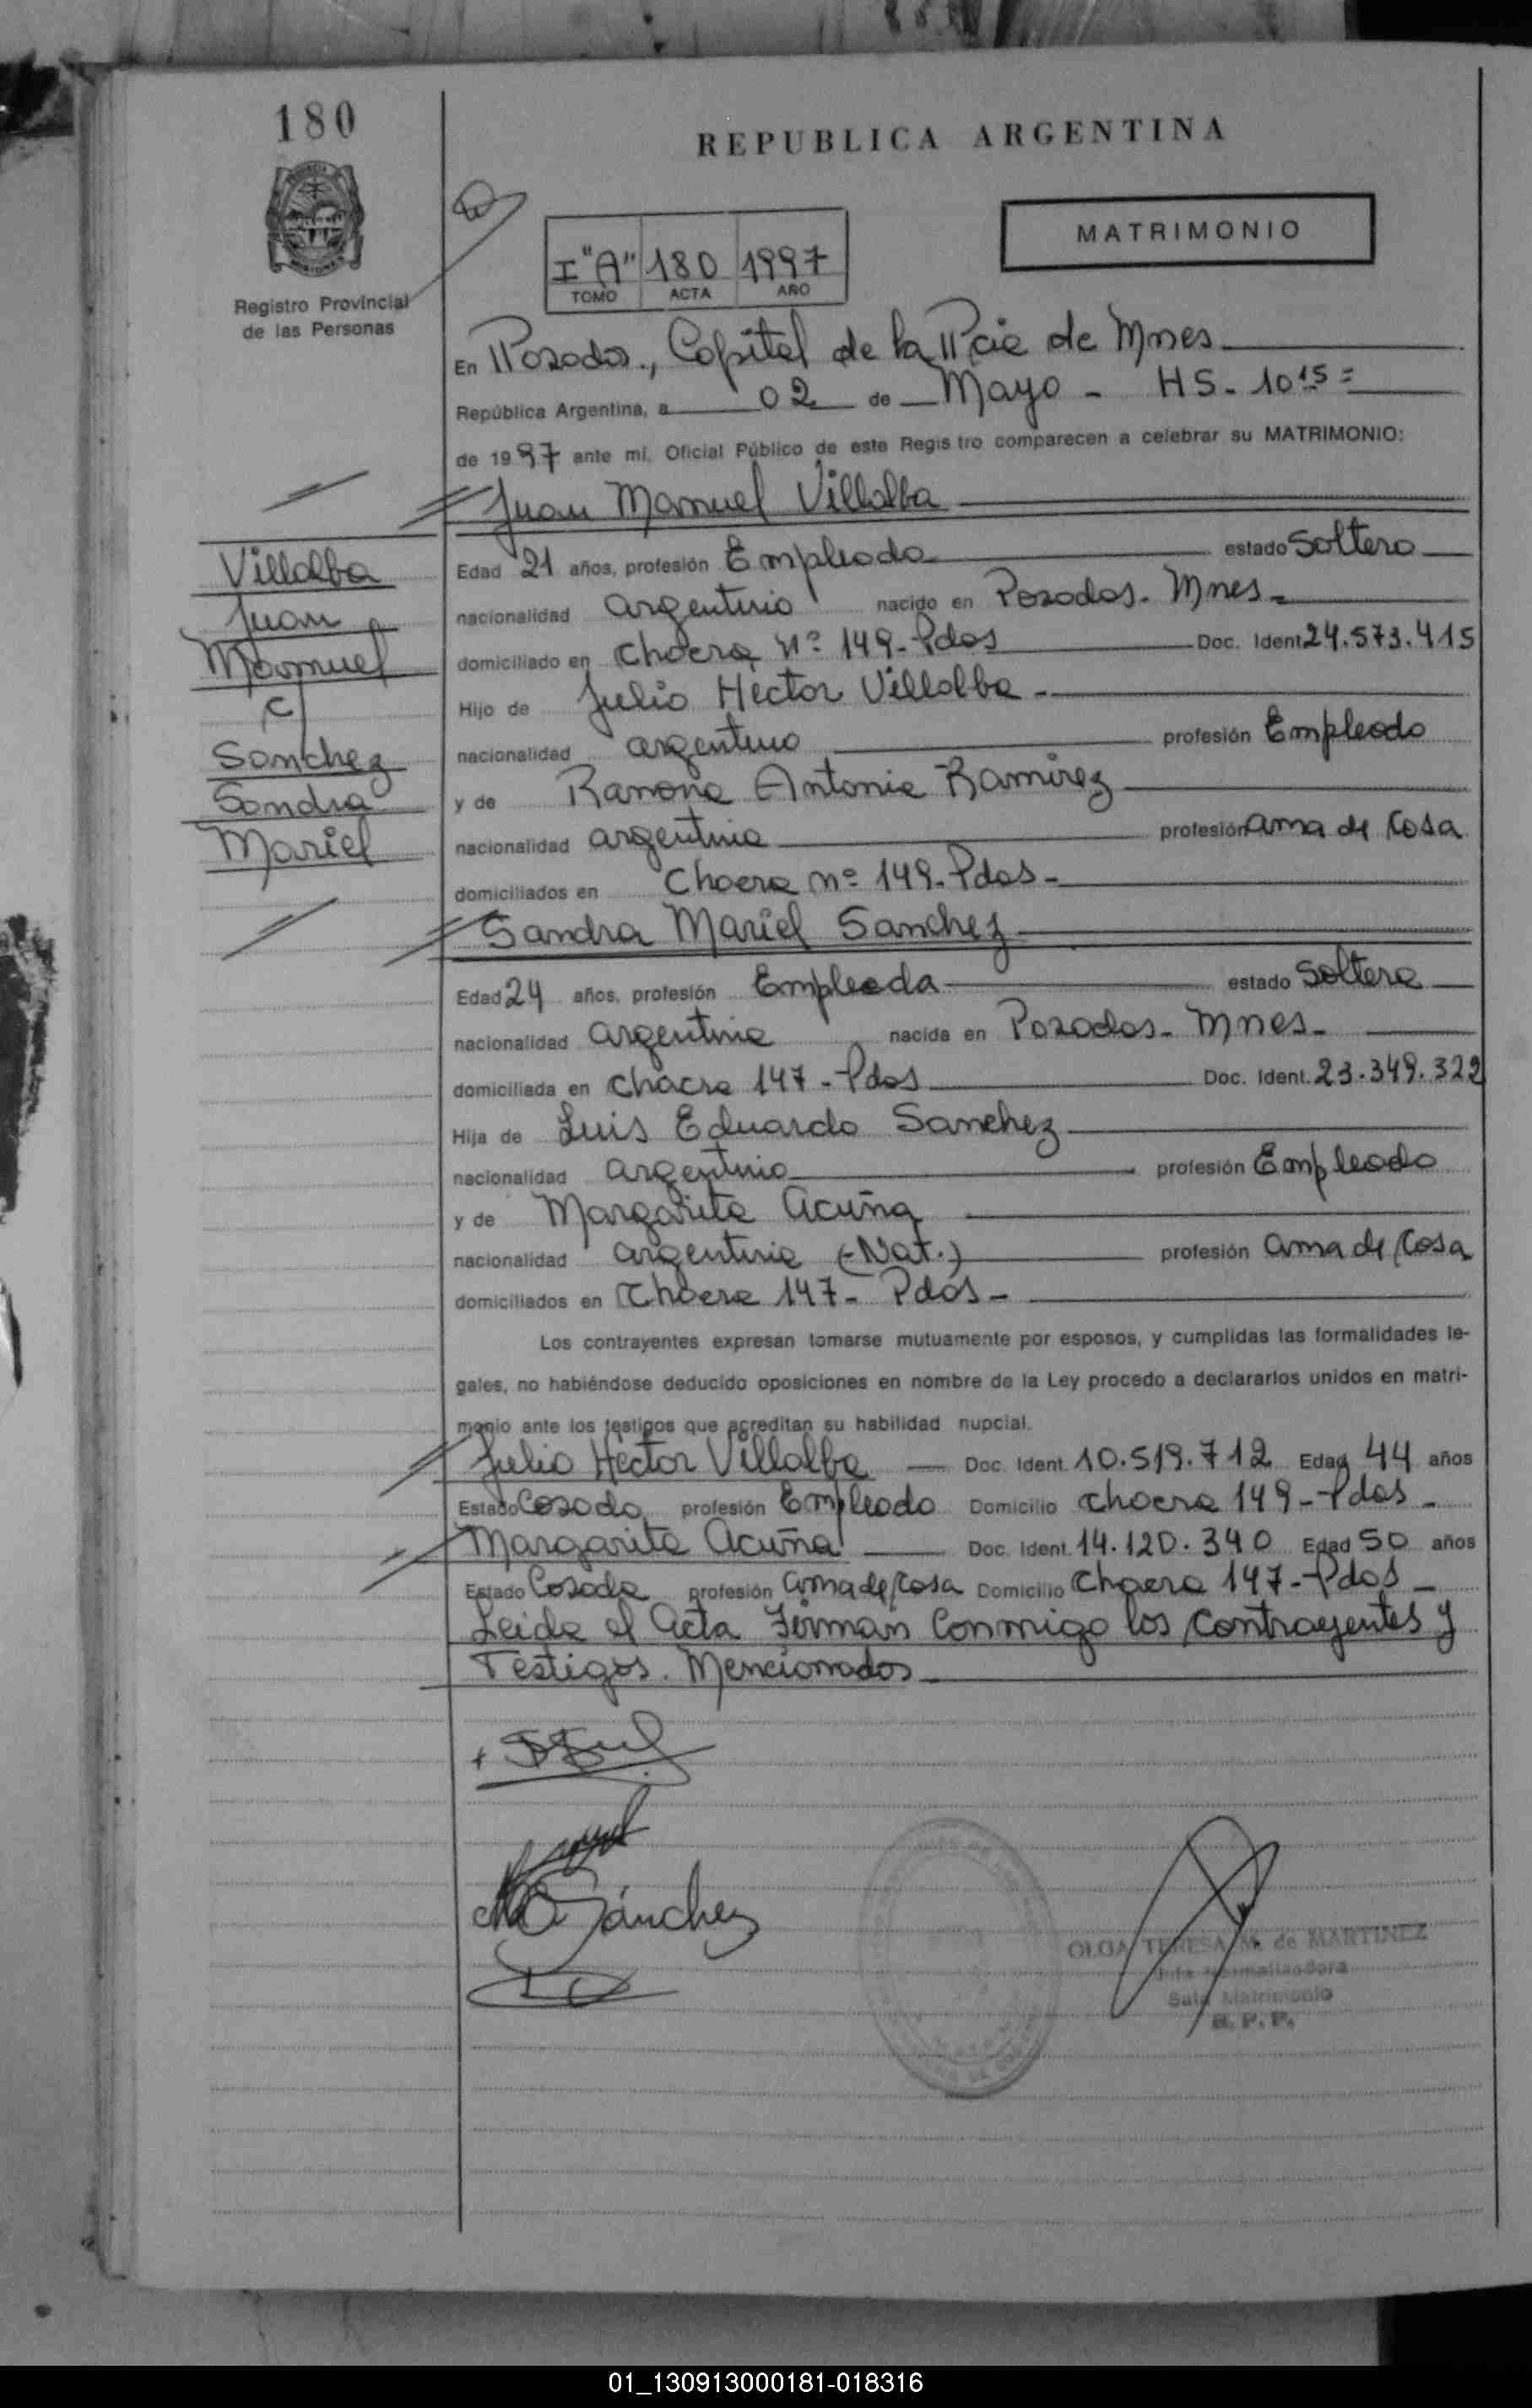 180
REPUBLICA ARGENTINA
MATRIMONIO
I "A" 180 1997
TOMO ACTA AÑO
Registro Provincial
de las Personas
En Posadas., Capital de la Pcia de Mnes
República Argentina, a 02 de Mayo - HS - 10 15 =
de 1997 ante mí, Oficial Público de este Registro comparecen a celebrar su MATRIMONIO:
Juan Manuel Villalba
Villalba
Juan
Manuel
c/
Sanchez
Sandra
Mariel
Edad 21 años, profesión Empleado estado Soltero
nacionalidad argentino nacido en Posadas - Mnes -
domiciliado en Chacra nº 149 - Pdas Doc. Ident. 24.573.415
Hijo de Julio Héctor Villalba -
nacionalidad argentino profesión Empleado
y de Ramona Antonia Ramirez
nacionalidad argentina profesión ama de casa
domiciliados en Chacra nº 149 - Pdas -
Sandra Mariel Sanchez
Edad 24 años, profesión Empleada estado Soltera
nacionalidad argentina nacida en Posadas - Mnes -
domiciliada en Chacra 147 - Pdas Doc. Ident. 23.349.322
Hija de Luis Eduardo Sanchez
nacionalidad argentino profesión Empleado
y de Margarita Acuña
nacionalidad argentina (-Nat.) profesión ama de casa
domiciliados en Chacra 147 - Pdas -
Los contrayentes expresan tomarse mutuamente por esposos, y cumplidas las formalidades le-
gales, no habiéndose deducido oposiciones en nombre de la Ley procedo a declararlos unidos en matri-
monio ante los testigos que acreditan su habilidad nupcial.
Julio Héctor Villalba Doc. Ident. 10.519.712 Edad 44 años
Estado Casado profesión Empleado Domicilio Chacra 149 - Pdas -
Margarita Acuña Doc. Ident. 14.120.340 Edad 50 años
Estado Casada profesión ama de casa Domicilio Chacra 147 - Pdas -
Leida el Acta Firman Conmigo los Contrayentes y
Testigos. Mencionados
Sánchez
OLGA TERESA M. de MARTINEZ
Sala Matrimonio
R. P. P.
01_130913000181-018316